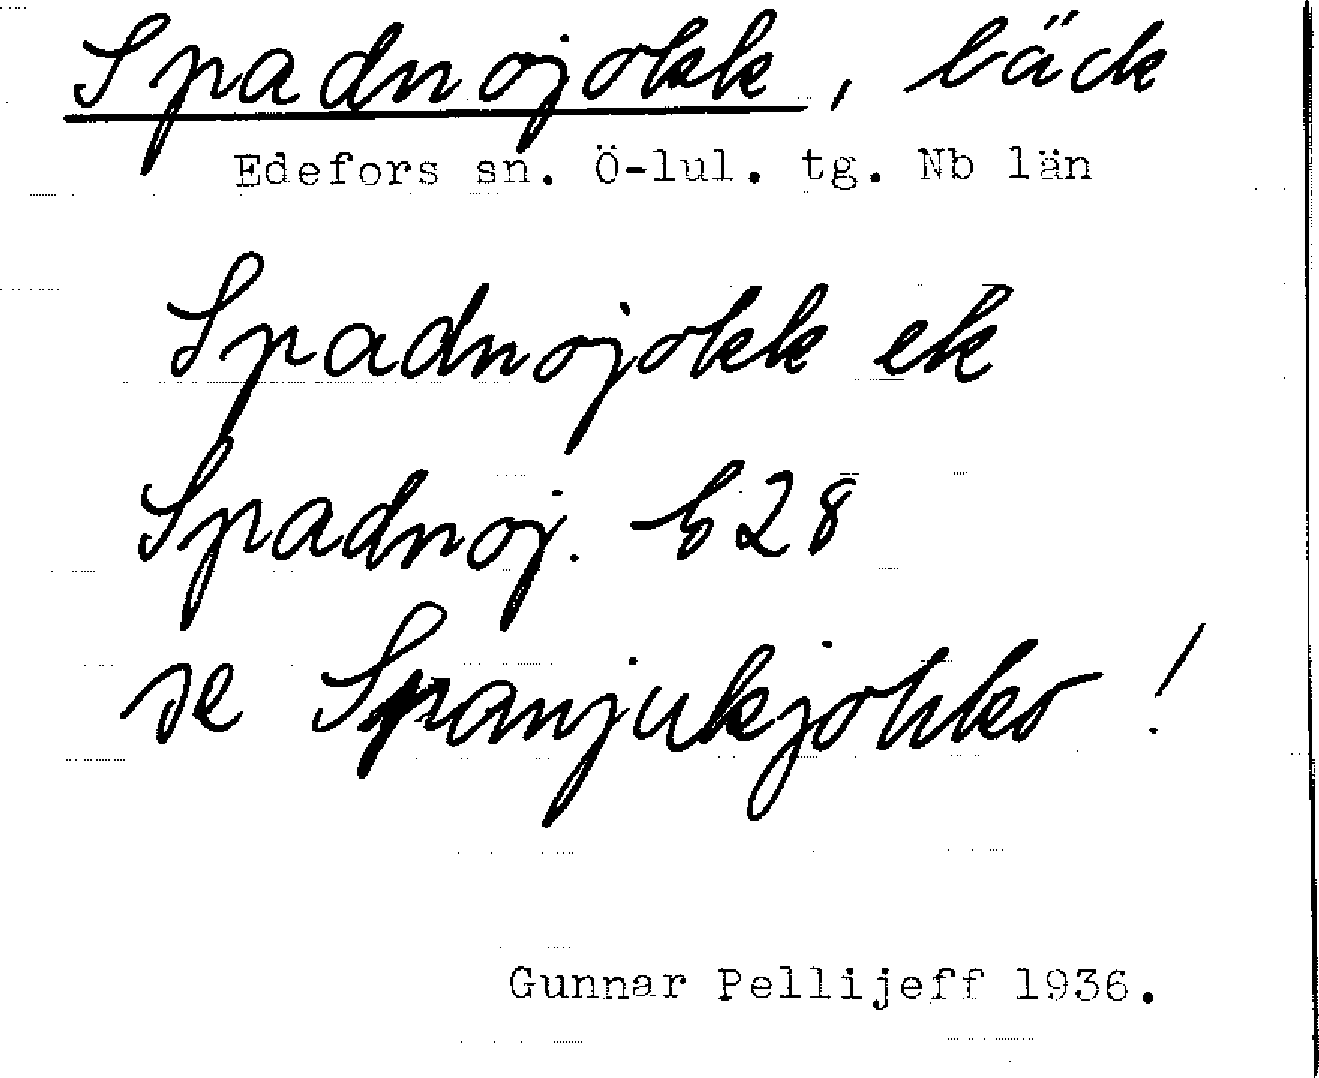 Spadnojokk, bäck
Edefors sn. Ö-lul. tg. Nb län
Spadnojokk ek
Spadnoj. b28
se Spanjukjokko!
Gunnar Pellijeff 1936.